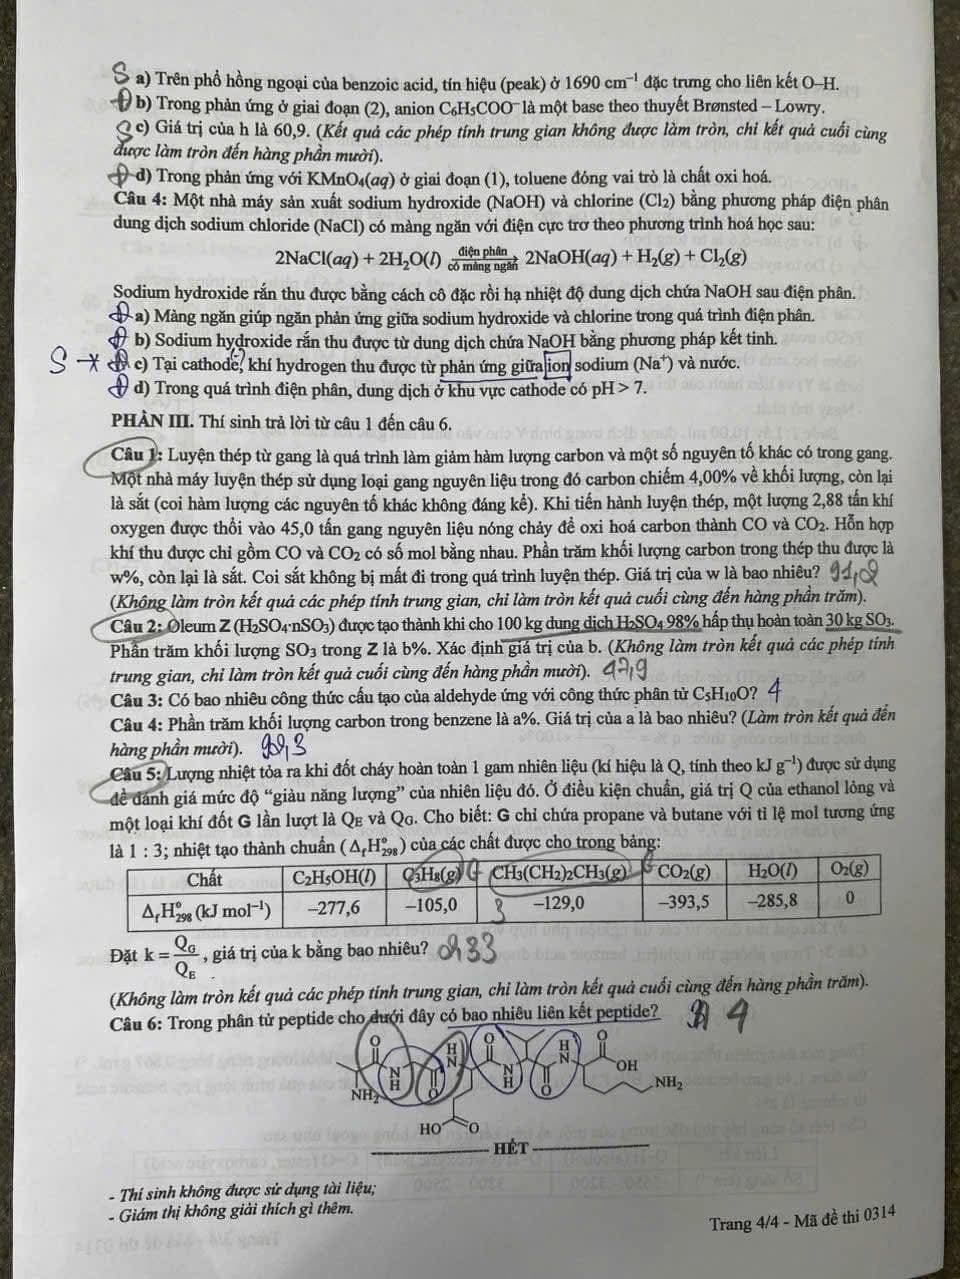 S a) Trên phổ hồng ngoại của benzoic acid, tín hiệu (peak) ở 1690 cm⁻¹ đặc trưng cho liên kết O–H.
Đ b) Trong phản ứng ở giai đoạn (2), anion C₆H₅COO⁻ là một base theo thuyết Brønsted – Lowry.
S c) Giá trị của h là 60,9. (Kết quả các phép tính trung gian không được làm tròn, chỉ kết quả cuối cùng
được làm tròn đến hàng phần mười).
Đ d) Trong phản ứng với KMnO₄(aq) ở giai đoạn (1), toluene đóng vai trò là chất oxi hoá.
Câu 4: Một nhà máy sản xuất sodium hydroxide (NaOH) và chlorine (Cl₂) bằng phương pháp điện phân
dung dịch sodium chloride (NaCl) có màng ngăn với điện cực trơ theo phương trình hoá học sau:
2NaCl(aq) + 2H₂O(l) điện phân có màng ngăn → 2NaOH(aq) + H₂(g) + Cl₂(g)
Sodium hydroxide rắn thu được bằng cách cô đặc rồi hạ nhiệt độ dung dịch chứa NaOH sau điện phân.
Đ a) Màng ngăn giúp ngăn phản ứng giữa sodium hydroxide và chlorine trong quá trình điện phân.
Đ b) Sodium hydroxide rắn thu được từ dung dịch chứa NaOH bằng phương pháp kết tinh.
S c) Tại cathode, khí hydrogen thu được từ phản ứng giữa ion sodium (Na⁺) và nước.
Đ d) Trong quá trình điện phân, dung dịch ở khu vực cathode có pH > 7.
PHẦN III. Thí sinh trả lời từ câu 1 đến câu 6.
Câu 1: Luyện thép từ gang là quá trình làm giảm hàm lượng carbon và một số nguyên tố khác có trong gang.
Một nhà máy luyện thép sử dụng loại gang nguyên liệu trong đó carbon chiếm 4,00% về khối lượng, còn lại
là sắt (coi hàm lượng các nguyên tố khác không đáng kể). Khi tiến hành luyện thép, một lượng 2,88 tấn khí
oxygen được thổi vào 45,0 tấn gang nguyên liệu nóng chảy để oxi hoá carbon thành CO và CO₂. Hỗn hợp
khí thu được chỉ gồm CO và CO₂ có số mol bằng nhau. Phần trăm khối lượng carbon trong thép thu được là
w%, còn lại là sắt. Coi sắt không bị mất đi trong quá trình luyện thép. Giá trị của w là bao nhiêu?
(Không làm tròn kết quả các phép tính trung gian, chỉ làm tròn kết quả cuối cùng đến hàng phần trăm).
Câu 2: Oleum Z (H₂SO₄·nSO₃) được tạo thành khi cho 100 kg dung dịch H₂SO₄ 98% hấp thụ hoàn toàn 30 kg SO₃.
Phần trăm khối lượng SO₃ trong Z là b%. Xác định giá trị của b. (Không làm tròn kết quả các phép tính
trung gian, chỉ làm tròn kết quả cuối cùng đến hàng phần mười). 
Câu 3: Có bao nhiêu công thức cấu tạo của aldehyde ứng với công thức phân tử C₅H₁₀O? 4
Câu 4: Phần trăm khối lượng carbon trong benzene là a%. Giá trị của a là bao nhiêu? (Làm tròn kết quả đến
hàng phần mười).
Câu 5: Lượng nhiệt tỏa ra khi đốt cháy hoàn toàn 1 gam nhiên liệu (kí hiệu là Q, tính theo kJ g⁻¹) được sử dụng
để đánh giá mức độ “giàu năng lượng” của nhiên liệu đó. Ở điều kiện chuẩn, giá trị Q của ethanol lỏng và
một loại khí đốt G lần lượt là Q_E và Q_G. Cho biết: G chỉ chứa propane và butane với tỉ lệ mol tương ứng
là 1 : 3; nhiệt tạo thành chuẩn (Δ_fH°₂₉₈) của các chất được cho trong bảng:
Chất C₂H₅OH(l) C₃H₈(g) CH₃(CH₂)₂CH₃(g) CO₂(g) H₂O(l) O₂(g)
Δ_fH°₂₉₈ (kJ mol⁻¹) –277,6 –105,0 –129,0 –393,5 –285,8 0
Đặt k = Q_G/Q_E, giá trị của k bằng bao nhiêu?
(Không làm tròn kết quả các phép tính trung gian, chỉ làm tròn kết quả cuối cùng đến hàng phần trăm).
Câu 6: Trong phân tử peptide cho dưới đây có bao nhiêu liên kết peptide? 4
O H N O H N O
NH₂ N H O N H O OH NH₂
HO O
HẾT
- Thí sinh không được sử dụng tài liệu;
- Giám thị không giải thích gì thêm.
Trang 4/4 - Mã đề thi 0314